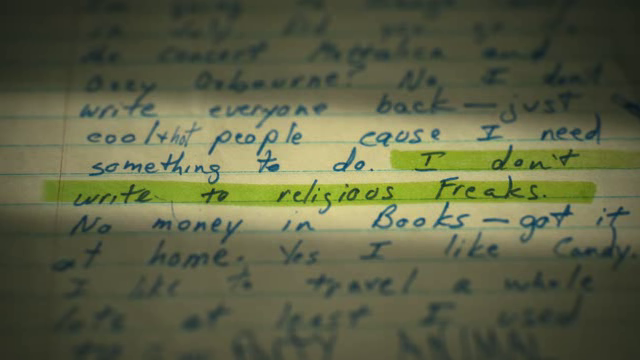 do concert Metallica and
Ozzy Osbourne? No I don't
write everyone back—just
cool+hot people cause I need
something to do. I don't
write to religious Freaks.
No money in Books—got it
at home. Yes I like Candy.
I like to travel a whole
lots at least I used